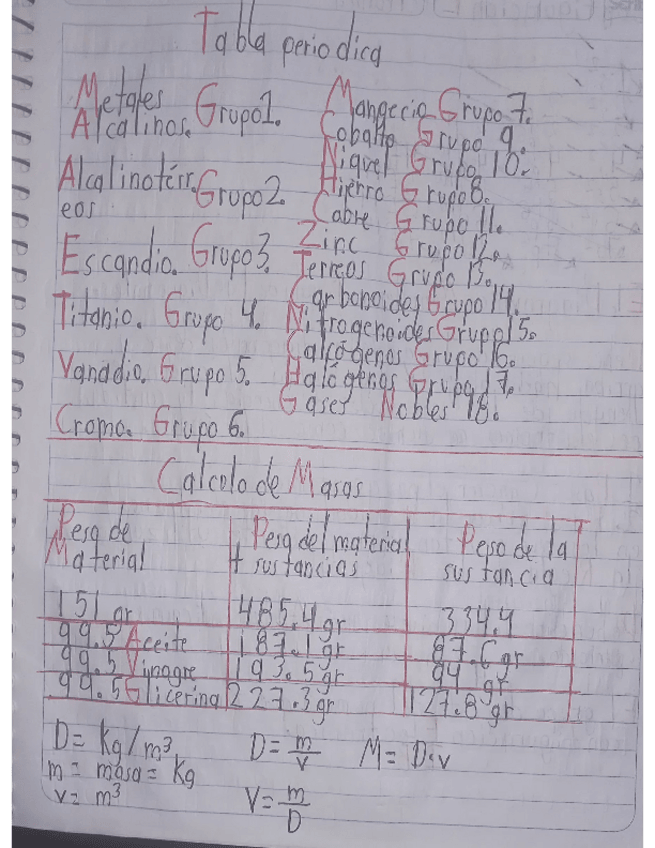 Tabla periodica
Metales
Alcalinos. Grupo 1.
Alcalinotérr
eos. Grupo 2.
Escandio. Grupo 3.
Titanio. Grupo 4.
Vanadio. Grupo 5.
Cromo. Grupo 6.
Mangecio Grupo 7.
Cobalto Grupo 9.
Niquel Grupo 10.
Hierro Grupo 8.
Cobre Grupo 11.
Zinc Grupo 12.
Terreos Grupo 13.
Carbonoides Grupo 14.
Nitrogenoides Grupo 15.
Calcógenos Grupo 16.
Halógenos Grupo 17.
Gases Nobles 18.
Calcolo de Masas
Peso de
Material
Peso del material
+ sustancias
Peso de la
sustancia
151 gr 485.4 gr 334.4
99.5 Aceite 187.1 gr 87.6 gr
99.5 Vinagre 193.5 gr 94 gr
99.5 Glicerina 227.3 gr 127.8 gr
D = Kg/m³ D = m/v M = D·v
m = masa = Kg
v = m³ V = m/D